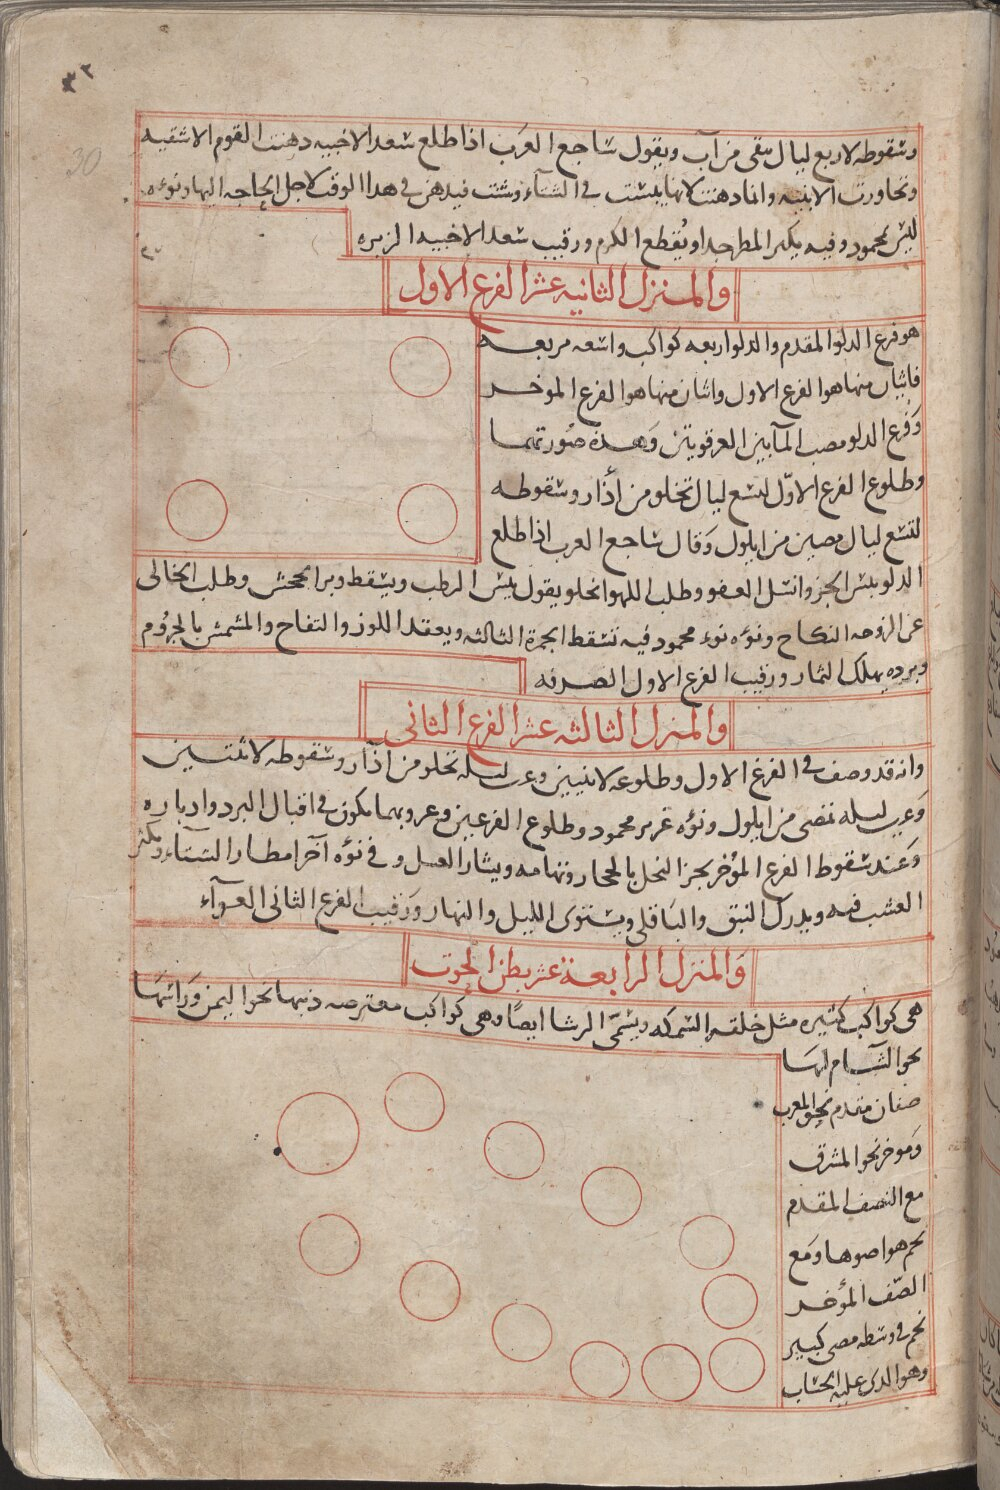 ٣٢
30
وسقوطه لاربع ليال تبقى من آب ويقول ساجع العرب اذا طلع سعد الاخبيه دهنت القوم الاسقيه
وتجاورت الابنيه وانما دهنت لانها يبست في الشتآء وشتت فيدهن في هدا الوقت لاجل الحاجه اليها ونوءه
ليس بمحمود وفيه يكثر المطر جدا ويُقطع الكرم ورقيب سعد الاخبيه الزبره
والمنزل الثانيه عشر الفرع الاول
هو فرع الدلو المقدم والدلو اربعه كواكب واسعه مربعه
فاثنان منها هوا لفرع الاول واثنان منها هوا لفرع الموخر
وَفرع الدلو مصب المآ بين العرقوتين وَهذه صُورتهما
وطلوع الفرع الاوّل لتسع ليال تخلو من أذار وسقوطه
لتسع ليال مضين من ايلول وَقال ساجع العرب اذا طلع
الدلو يبس الجز وانسل العفو وطلب اللهو الخلو يقول يبس الرطب ويسقط وبر الجحش وطلب الخالى
عن الزوجه النكاح ونوءه نوء محمود فيه تسقط الجمرة الثالثه ويعقد اللوز والتفاح والمشمش بالجرُوم
وبرده يهلك الثمار ورقيب الفرع الاول الصرفه
والمنزل الثالثه عشر الفرع الثانى
وانه قد وصف في الفرغ الاول وطلوعه لاثنين وعـ ليله تخلو من اذآر وسقوطه لاثنتين
وَعـ ليله تمضى من ايلول ونوءه غرير محمود وطلوع الفرعين وغروبهما يكون في اقبال البرد وادباره
وَعند سقوط الفرع المؤخر يجز النخل بالحجار وتهامه ويشار العسل وفي نوءه آخر امطار الشتاء ويكثر
العشب فيه ويدرك النبق والباقلى ويستوى الليل والنهار وَرقيب الفرع الثانى العوآء
وَالمنزل الرابعة عشر بطن الحوت
هى كواكب كثيره مثل خلقه السمكه ويسمّى الرشا ايضًا وهى كواكب معترضه ذنبها نحو اليمن وَراسها
نحو الشآم لها
صفان متقدم نحو المغرب
وَموخر نحو المشرق
مع النصف المقدم
نجم هو اضوها وَمع
الصّف المؤخر
نجم في وسطه مضى كبير
وهو الدى عليه الحساب